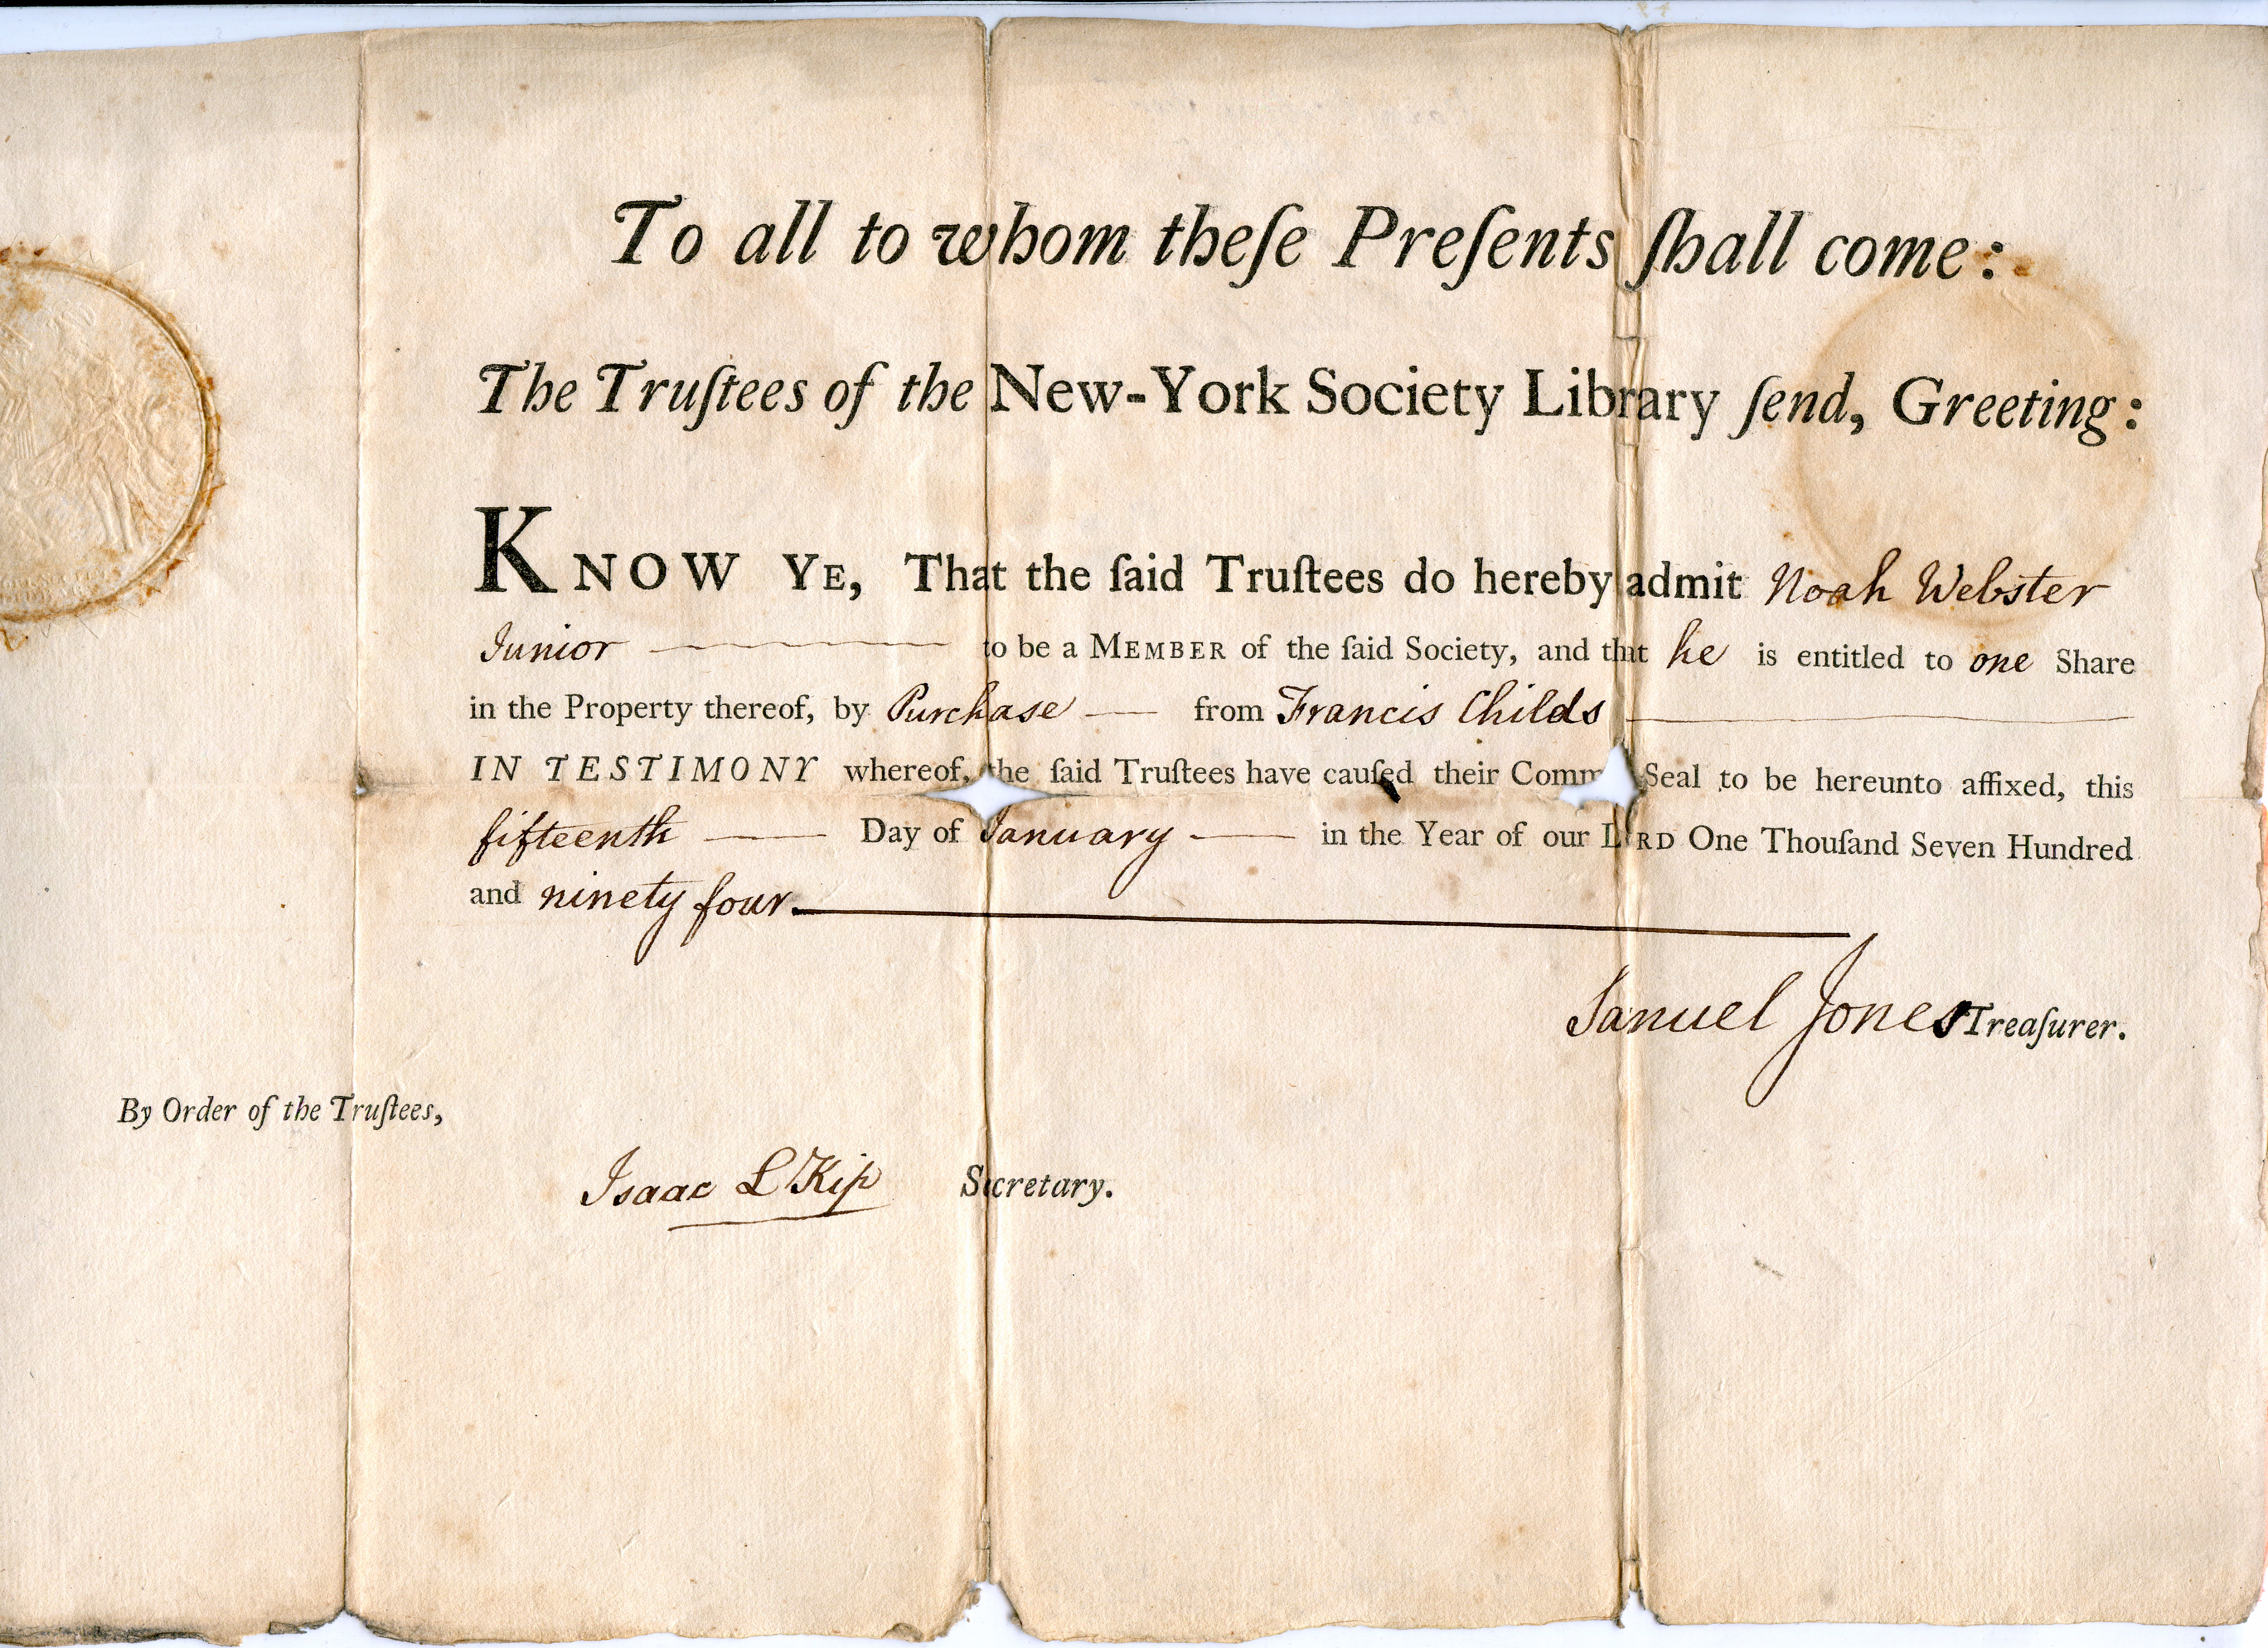 To all to whom theſe Preſents ſhall come:
The Truſtees of the New-York Society Library ſend, Greeting:
KNOW YE, That the ſaid Truſtees do hereby admit Noah Webster
Junior to be a MEMBER of the ſaid Society, and that he is entitled to one Share
in the Property thereof, by Purchase — from Francis Childs
IN TESTIMONY whereof, the ſaid Truſtees have cauſed their Comm Seal to be hereunto affixed, this
fifteenth — Day of January — in the Year of our LORD One Thouſand Seven Hundred
and ninety four.
Samuel Jones Treaſurer.
By Order of the Truſtees,
Isaac L Kip Secretary.